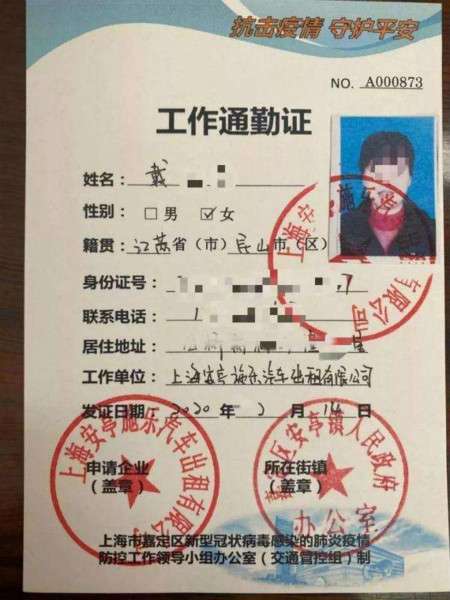 抗击疫情 守护平安
NO. A000873
工作通勤证
姓名：戴
性别：□男 ☑女
籍贯：江苏省（市）昆山市（区）
身份证号：
联系电话：1
居住地址：
工作单位：上海安亭施乐汽车出租有限公司
发证日期：2020年2月14日
申请企业
（盖章）
所在街镇
（盖章）
上海安亭施乐汽车出租有限公司
嘉定区安亭镇人民政府
办公室
上海市嘉定区新型冠状病毒感染的肺炎疫情
防控工作领导小组办公室（交通管控组）制